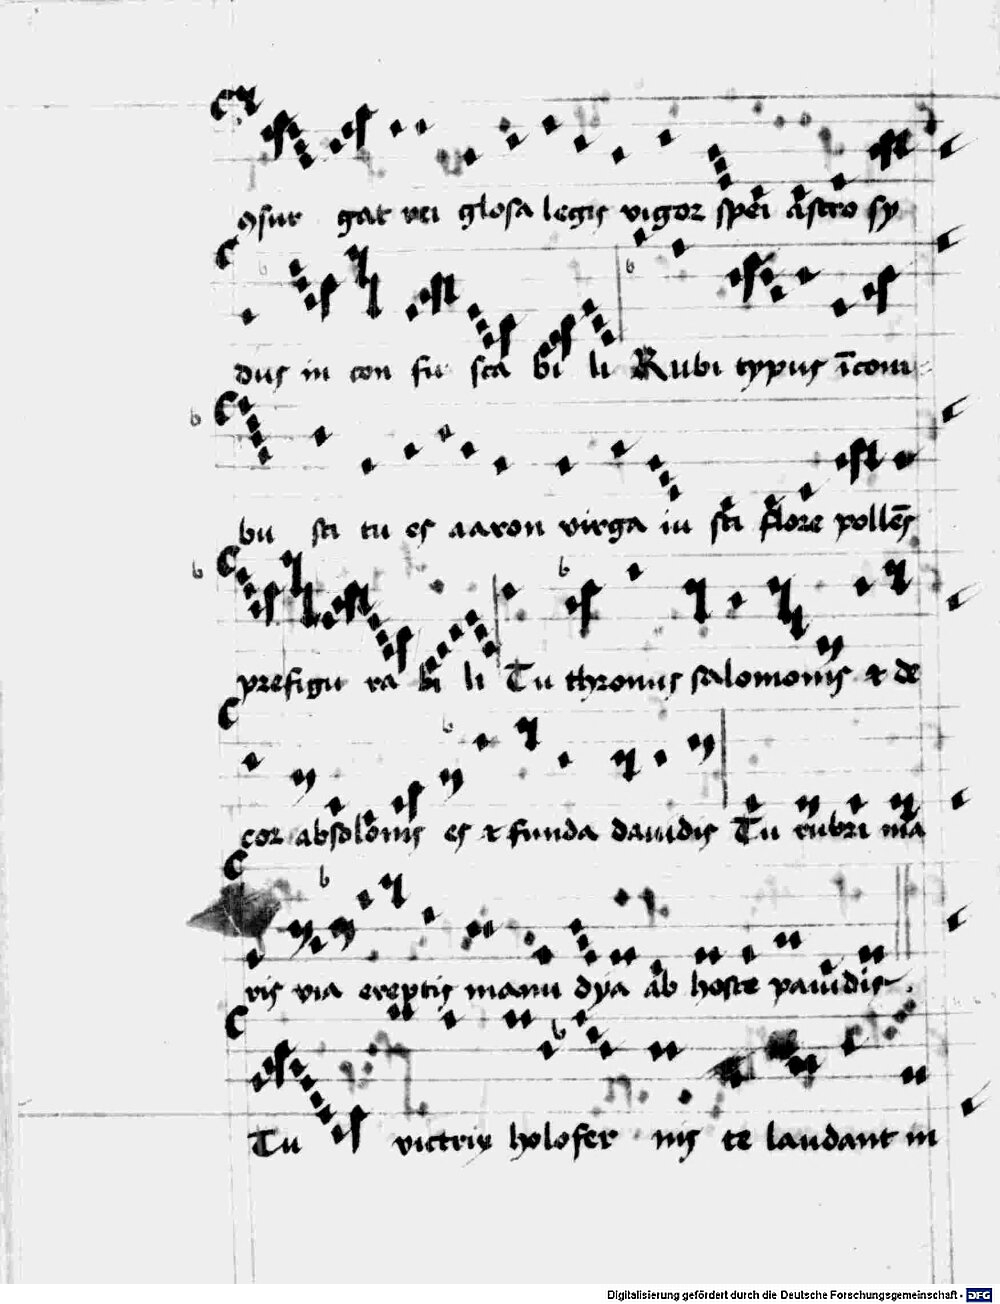 ꝯsur gat rei glosa legis vigor spei astro sy
dus in con fu sca bi li Rubi typus īcom
bu sti tu es aaron virga iu sti flore pollēs
prefigu ra bi li Tu thronus salomonis et de
cor absolonis es et funda dauidis Tu rubri ma
ris via ereptis manu dya ab hoste pauidis.
Tu victrix holofer nis te laudant in
Digitalisierung gefördert durch die Deutsche Forschungsgemeinschaft - DFG